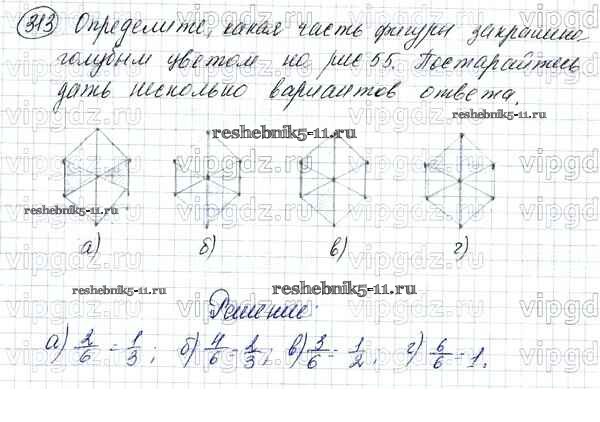 313 Определите, какая часть фигуры закрашено
голубым цветом на рис 55. Постарайтесь
дать несколько вариантов ответа.
reshebnik5-11.ru
reshebnik5-11.ru
reshebnik5-11.ru
а) б) в) г)
reshebnik5-11.ru
reshebnik5-11.ru
Решение:
а) 2/6 = 1/3; б) 4/6 = 2/3; в) 3/6 = 1/2; г) 6/6 = 1.
vipgdz.ru